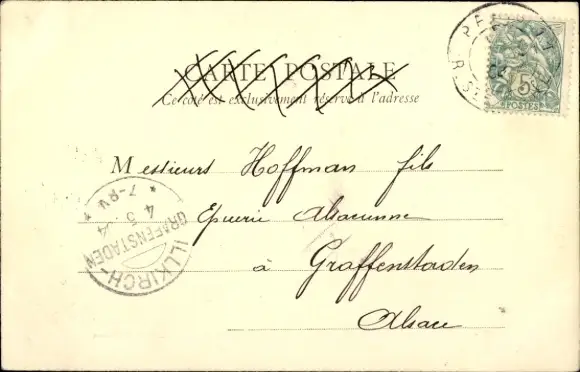 CARTE POSTALE
Ce côté est exclusivement réservé à l'adresse
5
POSTES
Messieurs Hoffman fils
Epicerie Alsacienne
à Graffenstaden
Alsace
ILLKIRCH-
GRAFENSTADEN
4 5 4
* 7-8V *